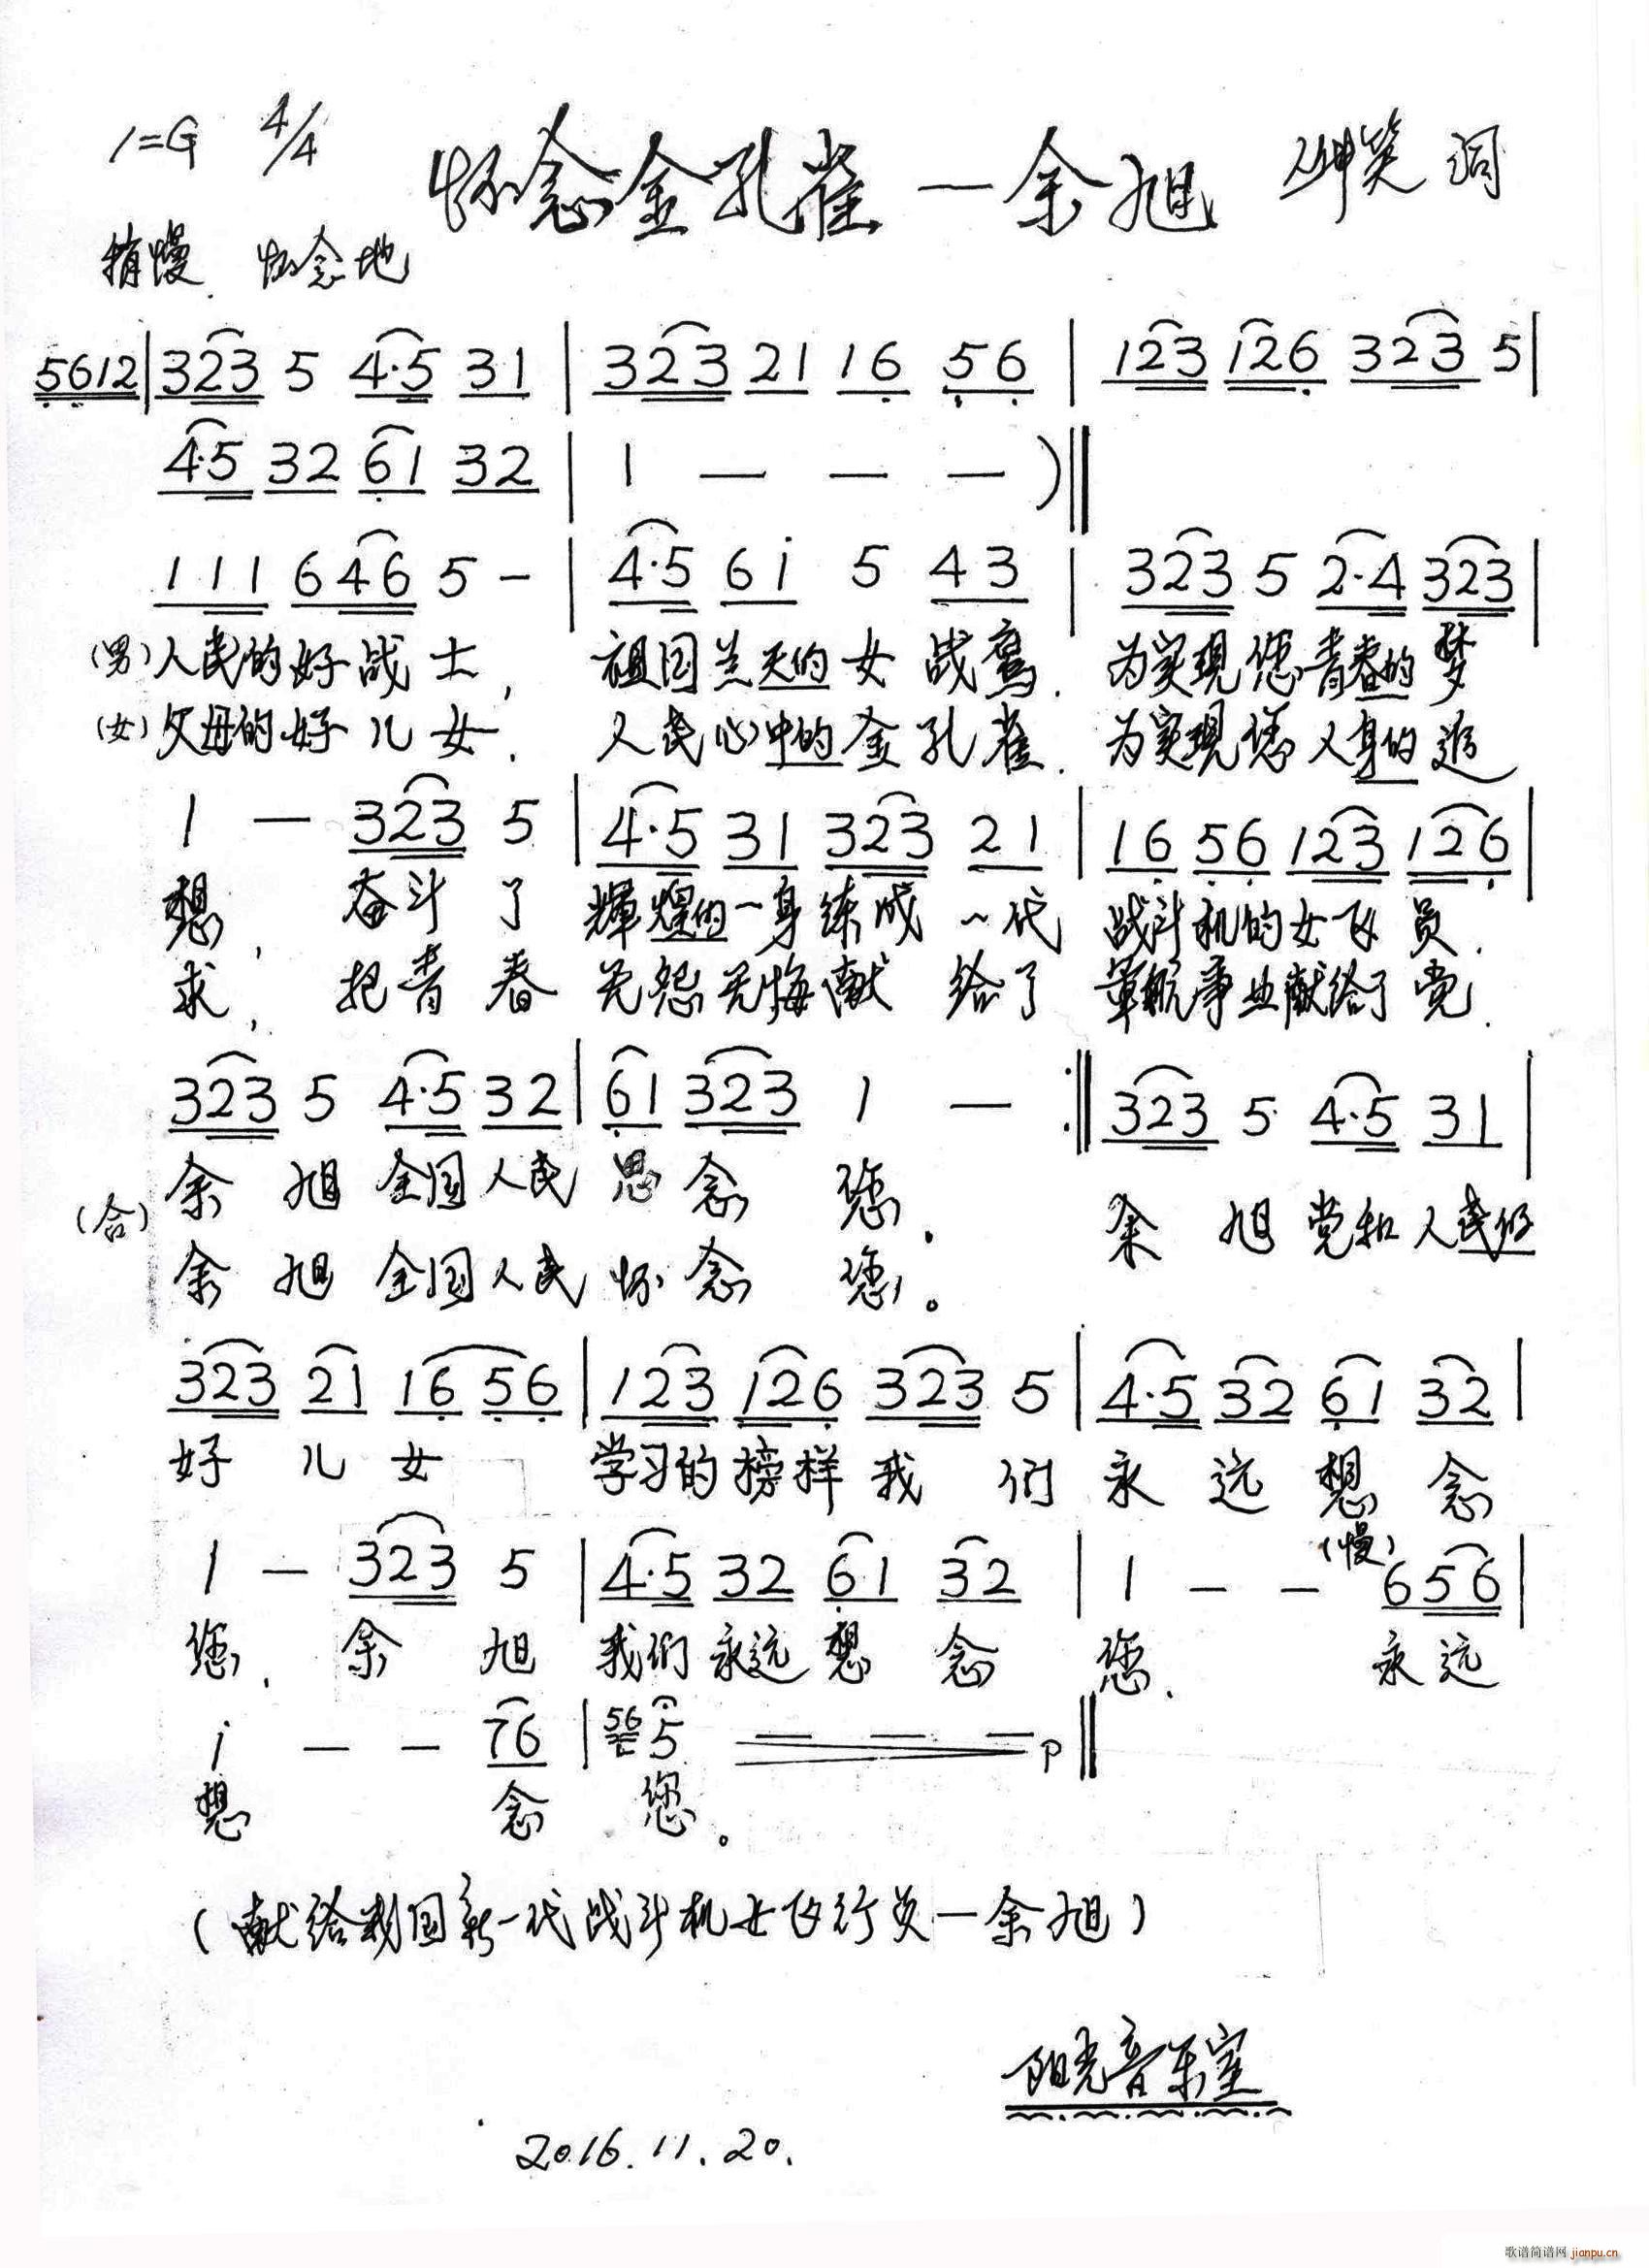 1=G 4/4
怀念金孔雀—余旭
笑 词
稍慢 怀念地
5612|323 5 4·5 31|323 21 16 56|123 126 323 5|
4·5 32 61 32|1 — — —)‖
111 646 5 —|4·5 6i 5 43|323 5 2·4 323|
(男)人民的好战士, 祖国兰天的女战鹰. 为实现您青春的梦
(女)父母的好儿女. 人民心中的金孔雀. 为实现您人身的追
1 — 323 5|4·5 31 323 21|16 56 123 126|
想, 奋斗了 辉煌的一身练成一代 战斗机的女飞员.
求, 把青春 无怨无悔献给了 军航事业献给了党.
323 5 4·5 32|61 323 1 — :‖323 5 4·5 31|
(合)余旭全国人民思念您. 余旭党和人民的
余旭全国人民怀念您。
323 21 16 56|123 126 323 5|4·5 32 61 32|
好儿女 学习的榜样我们永远想念
(慢)
1 — 323 5|4·5 32 61 32|1 — — 656|
您. 余旭我们永远想念您. 永远
i — — 76|56 5 — — — p‖
想念您。
(献给我国新一代战斗机女飞行员—余旭)
阳光音乐室
2016.11.20.
歌谱简谱网 jianpu.cn